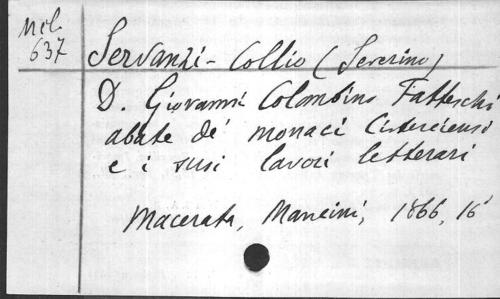 Mel.
637
Servanzi-Collio (Severino)
D. Giovanni Colombino Fatteschi
abate de' monaci Cisterciensi
e i suoi lavori letterari
Macerata, Mancini, 1866, 16°